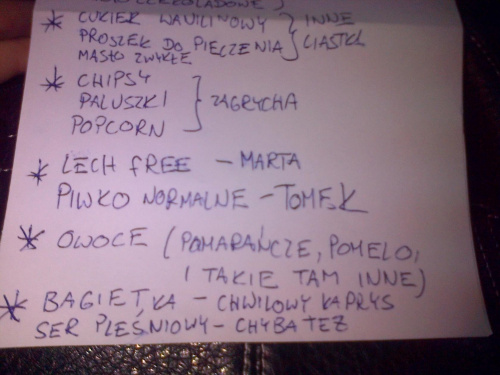 CZEKOLADOWE }
* CUKIER WANILINOWY } INNE
PROSZEK DO PIECZENIA } CIASTKA
MASŁO ZWYKŁE
* CHIPSY
PALUSZKI } ZAGRYCHA
POPCORN
* LECH FREE - MARTA
PIWKO NORMALNE - TOMEK
* OWOCE (POMARAŃCZE, POMELO,
I TAKIE TAM INNE)
* BAGIETKA - CHWILOWY KAPRYS
SER PLEŚNIOWY - CHYBA TEŻ